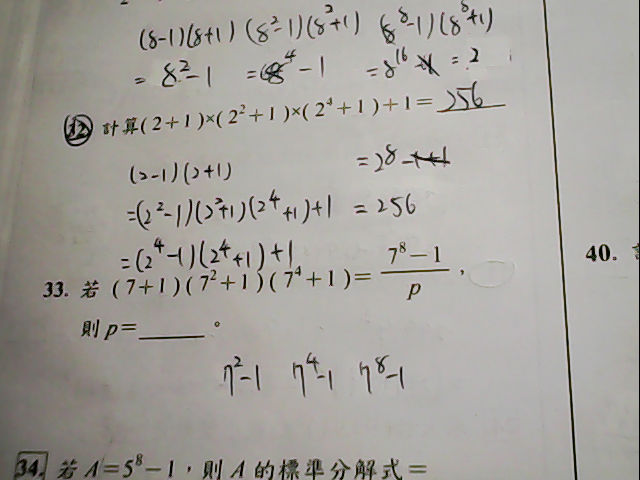 (8-1)(8+1) (8²-1)(8²+1) (8⁸-1)(8⁸+1)
= 8²-1 = 8⁴-1 = 8¹⁶ = 2
32 計算(2+1)×(2²+1)×(2⁴+1)+1= 256
(2-1)(2+1) =2⁸-1+1
=(2²-1)(2²+1)(2⁴+1)+1 = 256
=(2⁴-1)(2⁴+1)+1
33. 若 (7+1)(7²+1)(7⁴+1)= 7⁸-1 / p ,
40.
則p=______。
7²-1 7⁴-1 7⁸-1
34. 若A=5⁸-1,則A的標準分解式=